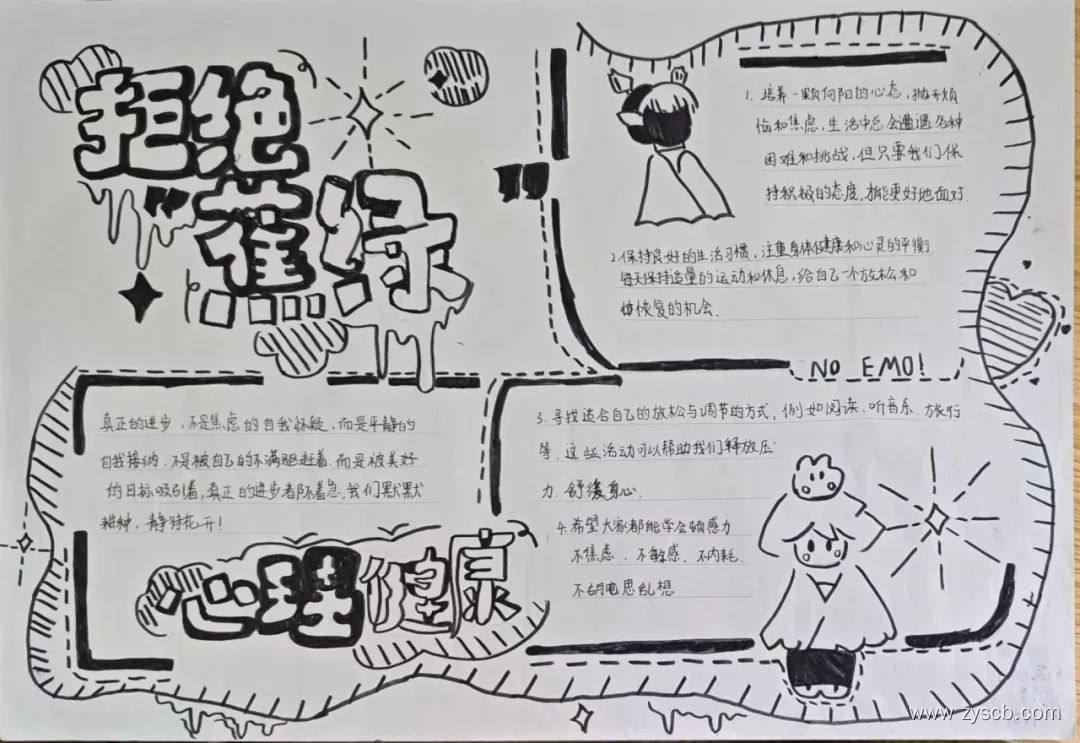 拒绝
"蕉绿
1. 培养一颗向阳的心态, 抛开烦
恼和焦虑, 生活中总会遭遇各种
困难和挑战, 但只要我们保
持积极的态度, 才能更好地面对.
2. 保持良好的生活习惯, 注重身体健康和心灵的平衡.
每天保持适量的运动和休息, 给自己一个放松和
恢复的机会.
NO EMO!
真正的进步, 不是焦虑的自我怀疑, 而是平静的
自我接纳. 不是被自己的不满驱赶着. 而是被美好
的目标吸引着, 真正的进步者都不着急. 我们默默
耕种, 静待花开!
心理健康
3. 寻找适合自己的放松与调节的方式, 例如阅读. 听音乐. 旅行
等. 这些活动可以帮助我们释放压
力. 舒缓身心.
4. 希望大家都能学会钝感力
不焦虑. 不敏感. 不内耗.
不思乱想
www.zyscb.com